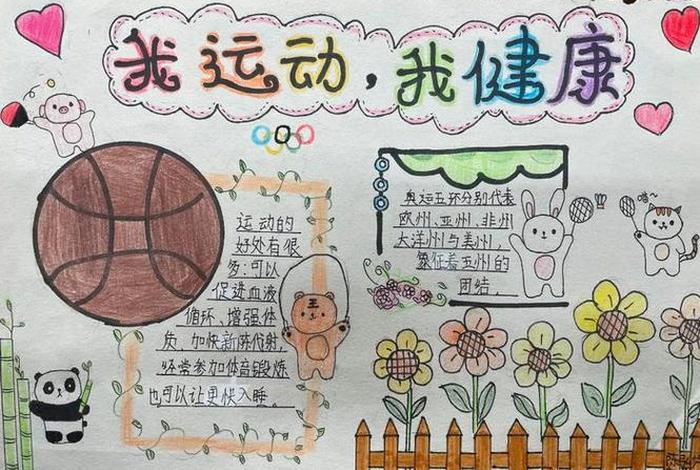 我运动，我健康
运动的
好处有很
多：可以
促进血液
循环、增强体
质、加快新陈代谢，
经常参加体育锻炼
也可以让更快入睡。
奥运五环分别代表
欧州、亚州、非州
大洋州与美州，
象征着五州的
团结。
王